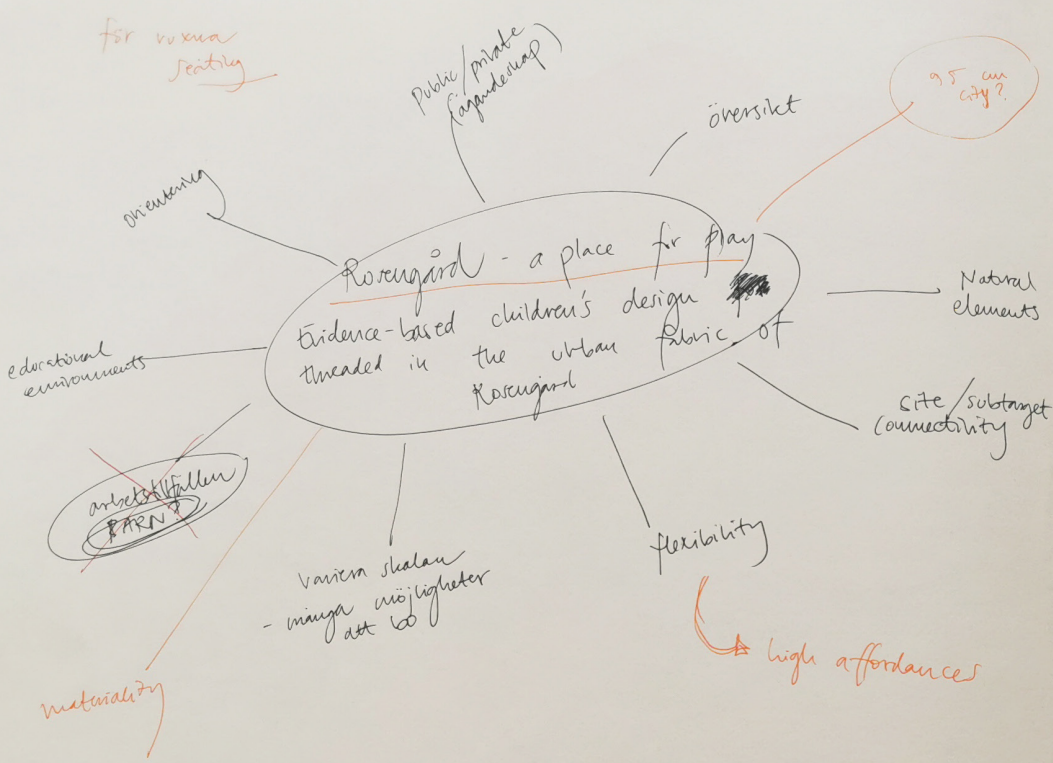 för vuxna
seating
Public/private
(ägandeskap)
översikt
95 cm
city?
orientering
Rosengård - a place for play
Evidence-based children's design
threaded in the urban fabric of
Rosengård
Natural
elements
educational
environments
site/subtarget
connectivity
arbetstillfällen
BARN?
variera skalan
- många möjligheter
att bo
flexibility
high affordances
materiality